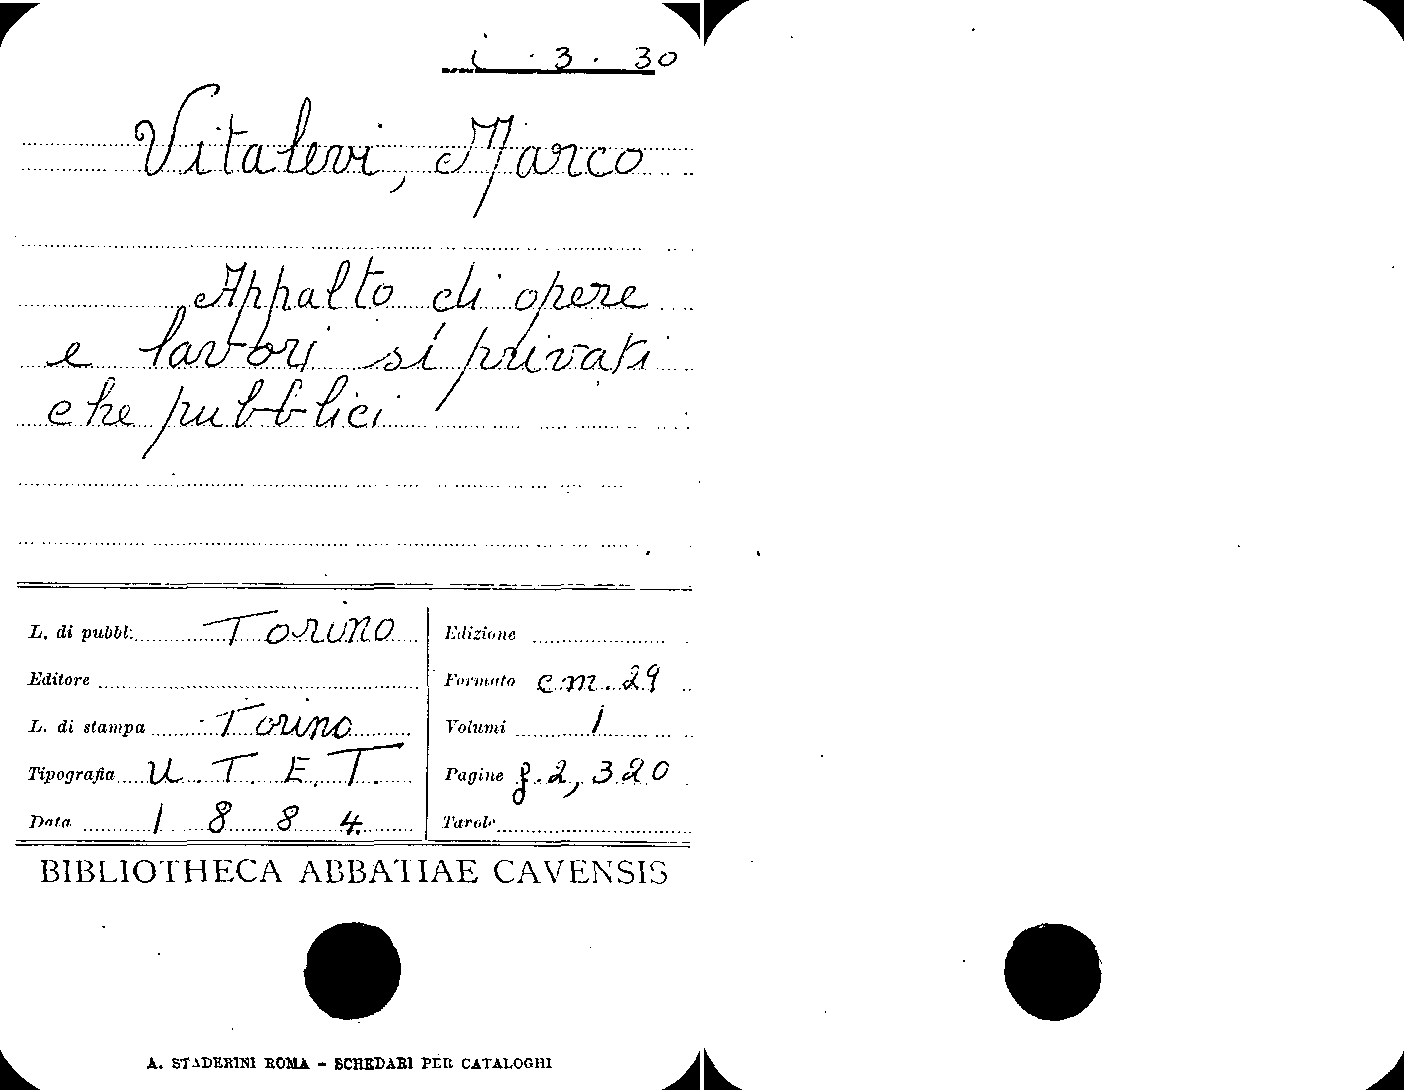 i . 3 . 30
Vitalevi, Marco
Appalto di opere
e lavori sí privati
che pubblici
L. di pubbl. Torino
Editore
L. di stampa Torino
Tipografia U. T. E. T.
Data 1884
Edizione
Formato cm. 29
Volumi 1
Pagine f. 2, 320
Tavole
BIBLIOTHECA ABBATIAE CAVENSIS
A. STADERINI ROMA - SCHEDARI PER CATALOGHI